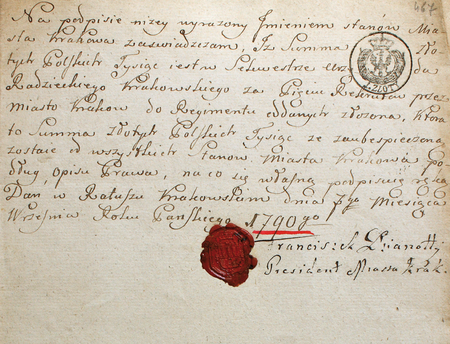 467
Na podpisie niżey wyrażony Imieniem stanów Mia-
sta Krakowa zaświadczam, Iż Summa Zło-
tych Polskich Tysiąc iest w Sekwestrze Urzę du
Radzieckiego Krakowskiego za Pięciu Rekrutów przez
miasto Kraków do Regimentu oddanych złożona, Która
to Summa złotych Polskich Tysiąc ze zaubespieczona
zostaie od wszystkich Stanow Miasta Krakowa po-
dług Opisu Prawa, na co się własną podpisuię ręką
Dan w Ratuszu Krakowskim dnia Miesiąca
Września Roku Pańskiego 1790go
Franciszek
Prezydent Miasta Krak.